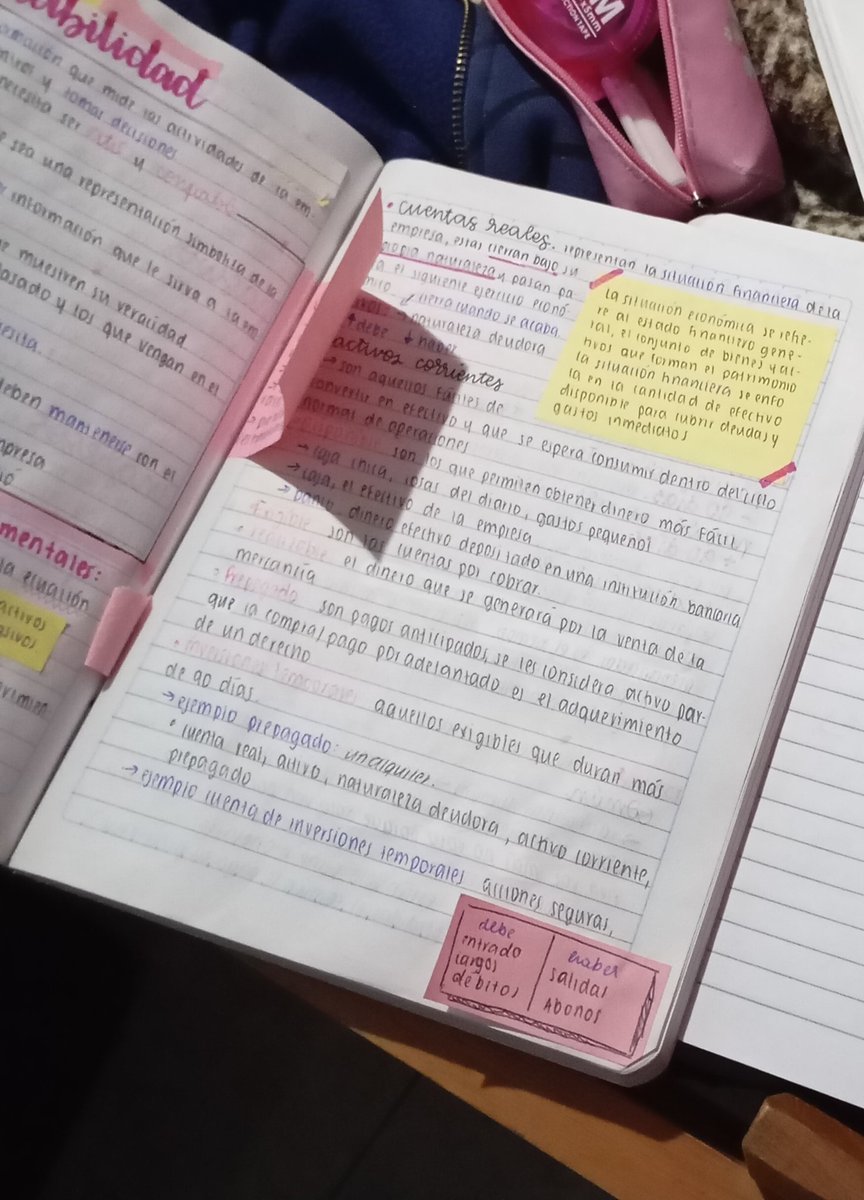 abilidad
que mide las actividades de la em-
y tomar decisiones
necesita ser y
sea una representación simbolica de la
información que le sirva a la em
muestren su veracidad
pasado y los que vengan en el
deben mantenerse con el
mpresa
mentales:
la ecuación
activos
asivos
• cuentas reales. representan la situación financiera de la
empresa, estas cierran bajo su
propia naturaleza y pasan pa
a el siguiente ejercicio econó
mico cierra cuando se acaba
naturaleza deudora
↑ debe ↓ haber
La situación económica se refie-
re al estado financiero gene-
ral, el conjunto de bienes y ac-
tivos que forman el patrimonio
la situación financiera se enfo
ca en la cantidad de efectivo
disponible para cubrir deudas y
gastos inmediatos
activos corrientes
→ son aquellos fáciles de
convertir en efectivo y que se espera consumir dentro del ciclo
normal de operaciones
son los que permiten obtener dinero más fácil
→ caja chica, cosas del diario, gastos pequeños
→ caja, el efectivo de la empresa
→ banco dinero efectivo depositado en una institución bancaria
Exigible son las cuentas por cobrar.
• realizable el dinero que se generará por la venta de la
mercancía
• Prepagado son pagos anticipados, se les considera activo por-
que la compra/pago por adelantado es el adquerimiento
de un derecho
• inversiones temporales aquellos exigibles que duran más
de 90 días.
→ ejemplo prepagado: un alquiler.
• cuenta real, activo, naturaleza deudora, activo corriente,
prepagado
→ ejemplo cuenta de inversiones temporales acciones seguras,
debe
entrado
cargos
débitos
haber
salidas
Abonos
M
x5mm
CTION TAPE